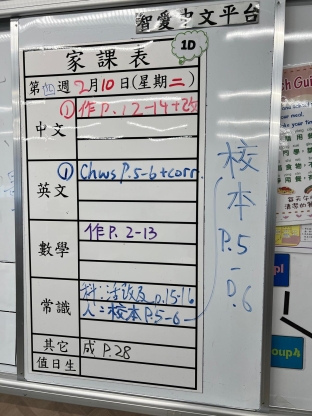 智愛中文平台
家課表
1D
第四週2月10日(星期二)
中文
①作P.12-14+25
英文
①Chws P.5-6+corr.
數學
作P.2-13
常識
科:清改及p.15-16
人:校本P.5-6
其它
成P.28
值日生
校本P.5-P.6